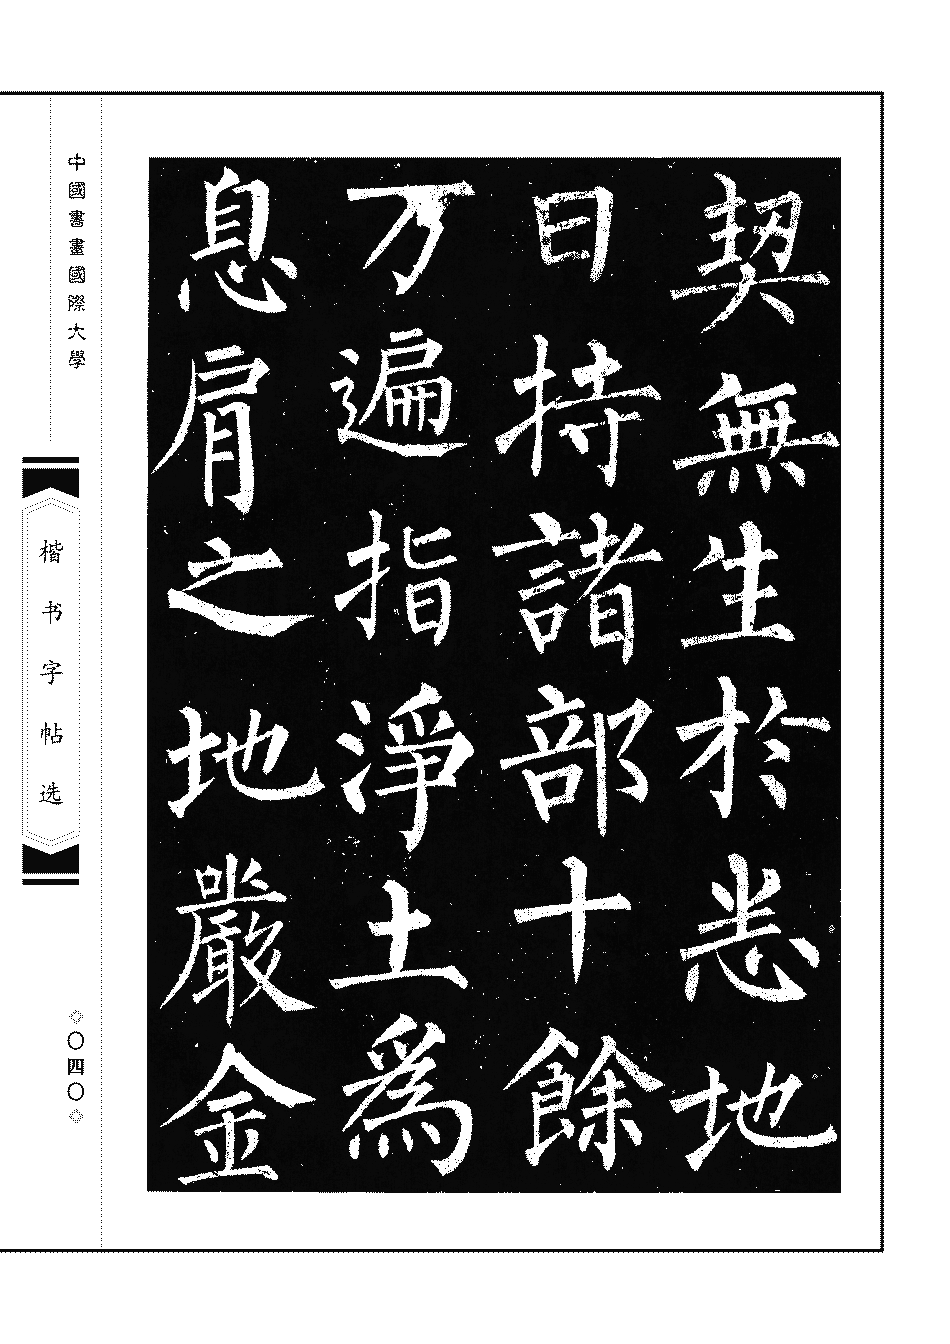 契無生於悉地
日持諸部十餘
万遍指淨土為
息肩之地嚴金
中國書畫國際大學
楷书字帖选
◇〇四〇◇